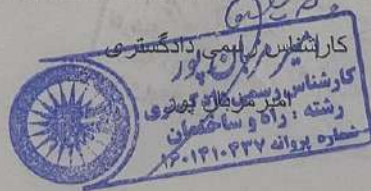 کارشناس رسمی دادگستری
امیر مرزبان پور
کارشناس رسمی دادگستری
رشته : راه و ساختمان
شماره پروانه ۱۴۰۱۴۱۰۴۳۷